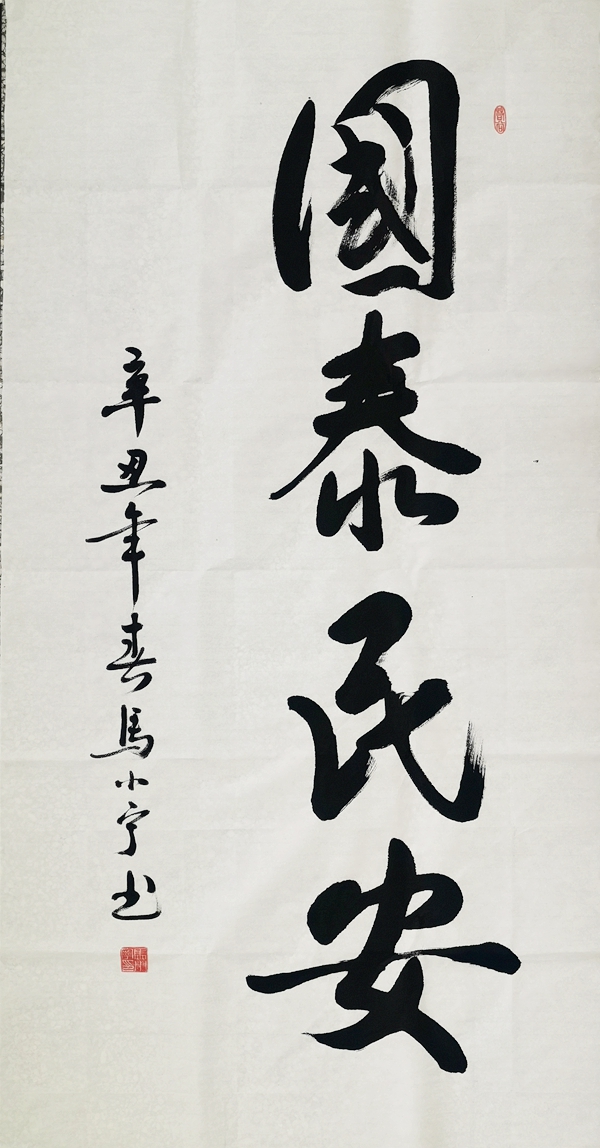 國泰民安
辛丑年春馬小宁书